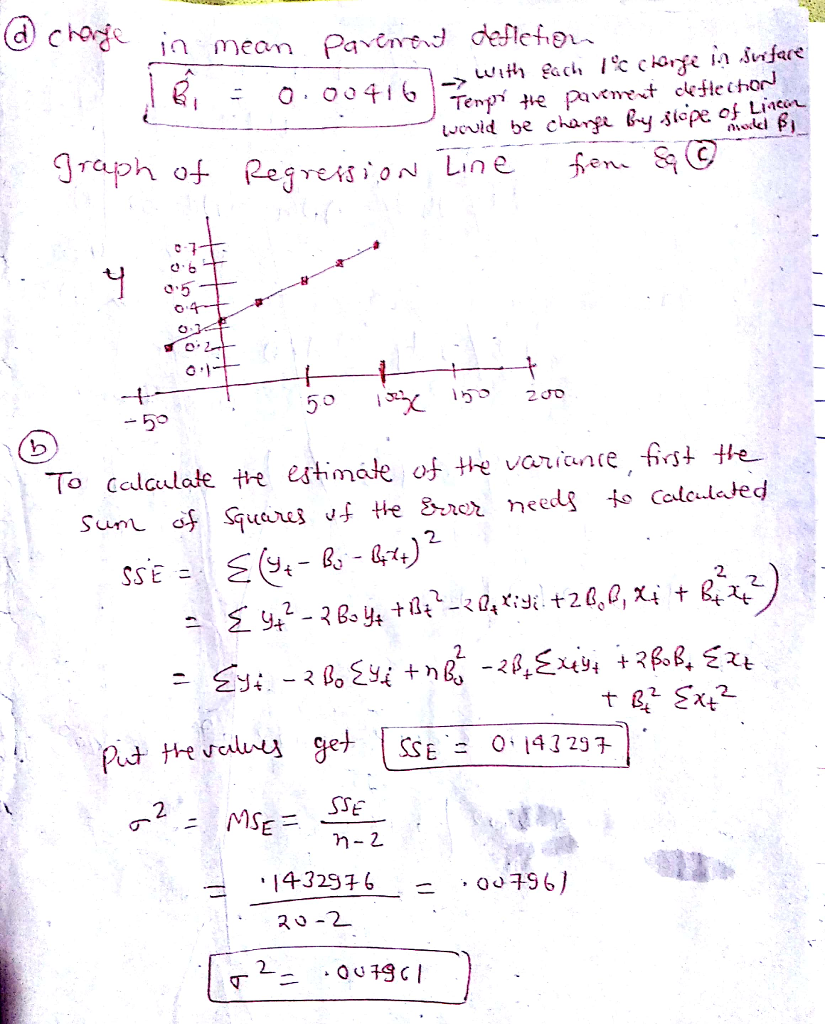 (d) change in mean Pavement deflection
β̂₁ = 0.00416 → with each 1°c change in surface
Tempr the pavement deflection
would be change By slope of Linear
model β₁
graph of Regression Line from Eq (C)
0.7
0.6
y 0.5
0.4
0.3
0.2
0.1
-50 50 100 x 150 200
(b)
To calculate the estimate of the variance, first the
sum of squares of the Error needs to calculated
SSE = Σ(yᵢ - B₀ - B₁xᵢ)²
= Σ yᵢ² - 2B₀yᵢ + B₁² - 2B₁xᵢyᵢ + 2B₀B₁xᵢ + B₁²xᵢ²)
= Σyᵢ - 2B₀Σyᵢ + nB₀² - 2B₁Σxᵢyᵢ + 2B₀B₁Σxᵢ
+ B₁² Σxᵢ²
Put the values get SSE = 0.143297
σ² = MSE = SSE
n-2
= .1432976 = .007961
20-2
σ² = .007961